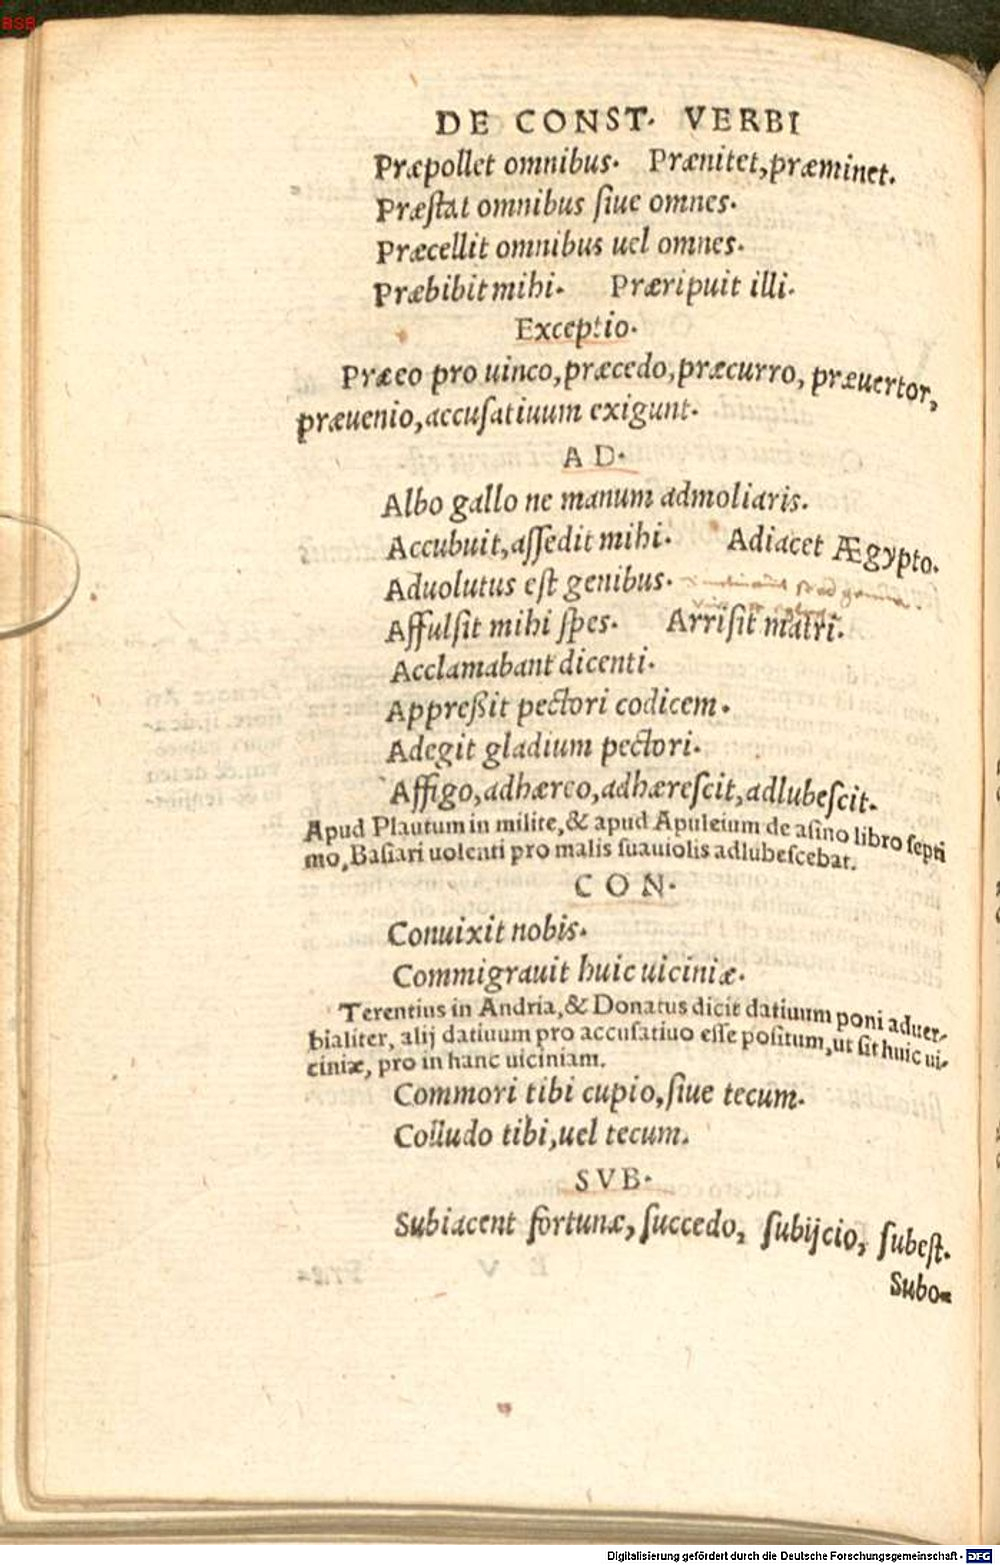 BSB
DE CONST. VERBI
Præpollet omnibus. Prænitet, præminet.
Præſtat omnibus ſiue omnes.
Præcellit omnibus uel omnes.
Præbibit mihi. Præripuit illi.
Exceptio.
Præeo pro uinco, præcedo, præcurro, præuertor,
præuenio, accuſatiuum exigunt.
AD.
Albo gallo ne manum admoliaris.
Accubuit, aſſedit mihi. Adiacet Ægypto.
Aduolutus eſt genibus.
Affulſit mihi ſpes. Arriſit matri.
Acclamabant dicenti.
Appreßit pectori codicem.
Adegit gladium pectori.
Affigo, adhæreo, adhæreſcit, adlubeſcit.
Apud Plautum in milite, & apud Apuleium de aſino libro ſepti
mo, Baſiari uolenti pro malis ſuauiolis adlubeſcebat.
CON.
Conuixit nobis.
Commigrauit huic uiciniæ.
Terentius in Andria, & Donatus dicit datiuum poni aduer-
bialiter, alij datiuum pro accuſatiuo eſſe poſitum, ut ſit huic ui-
ciniæ, pro in hanc uiciniam.
Commori tibi cupio, ſiue tecum.
Colludo tibi, uel tecum.
SVB.
Subiacent fortunæ, ſuccedo, ſubijcio, ſubeſt.
Subo-
Digitalisierung gefördert durch die Deutsche Forschungsgemeinschaft - DFG